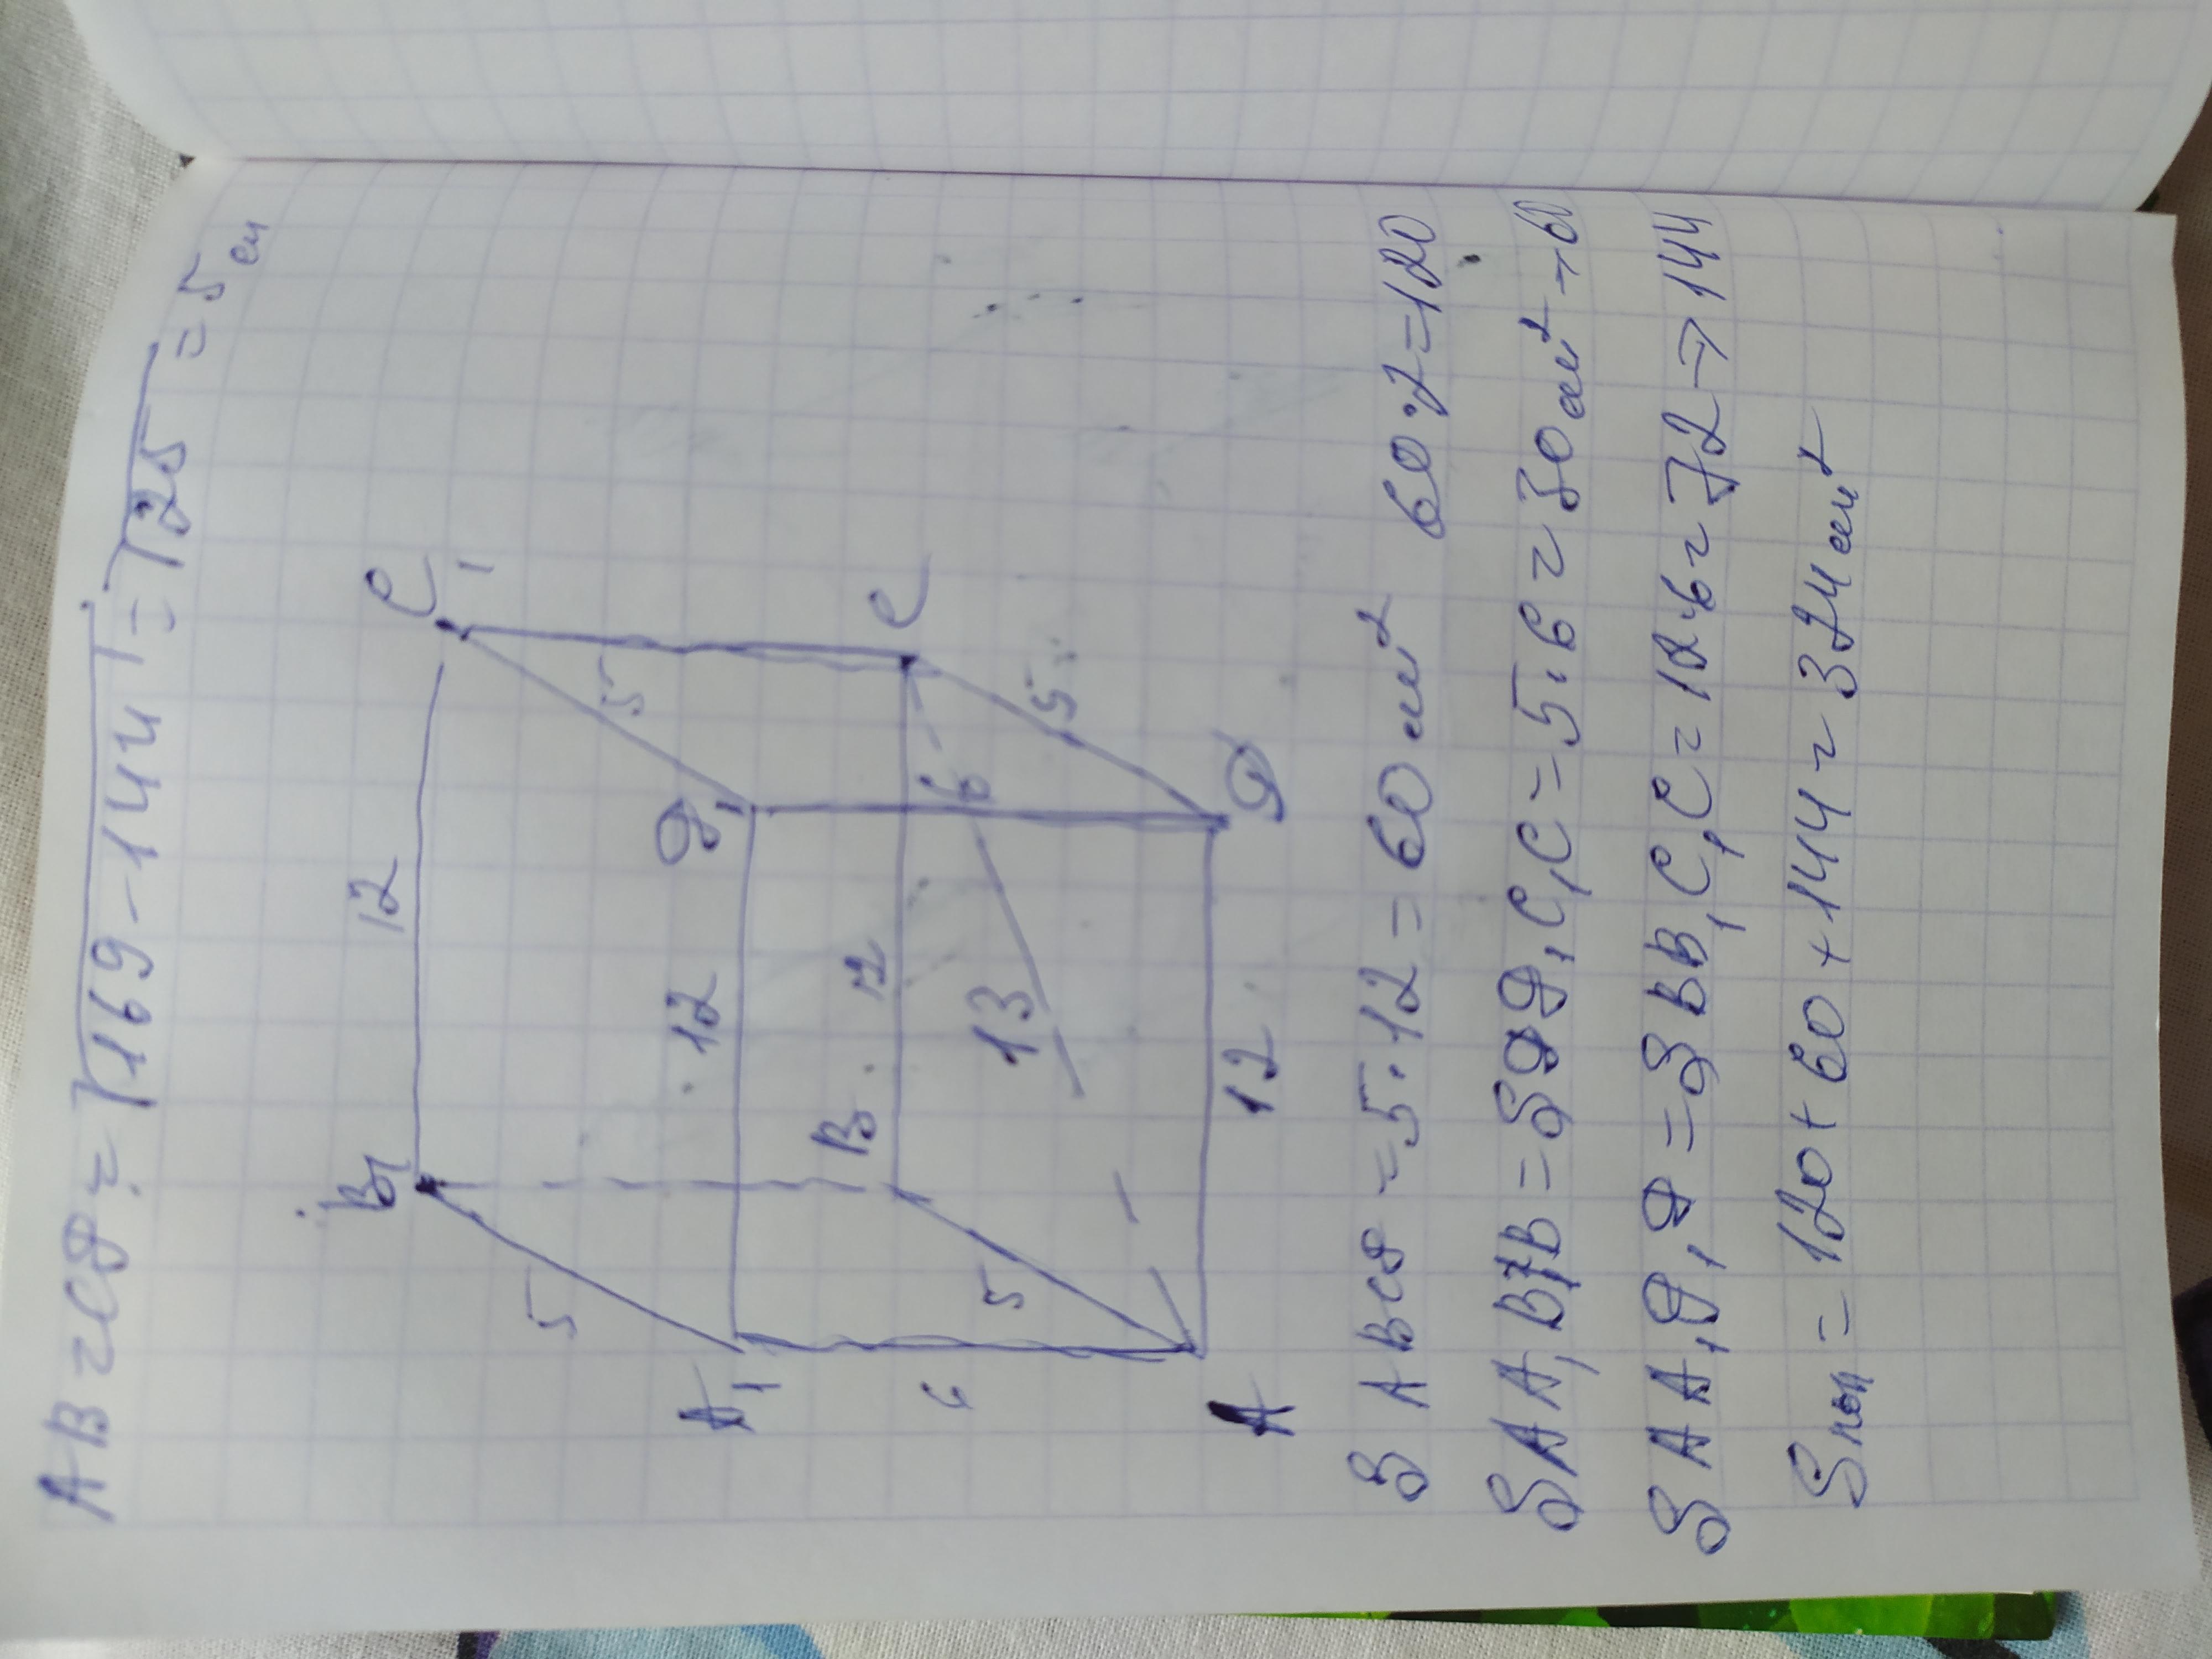 AB=CД=√169-144=√25=5 см
B₁ 12 C₁
5 5
A₁ 12 Д₁
B 12 C
6 13 6
5 5
A 12 Д
S ABCД=5·12=60 см² 60·2=120
SAA₁B₁B=SДД₁C₁C=5·6=30 см²→60
SAA₁Д₁Д=SBB₁C₁C=12·6=72→144
Sпол=120+60+144=324 см²